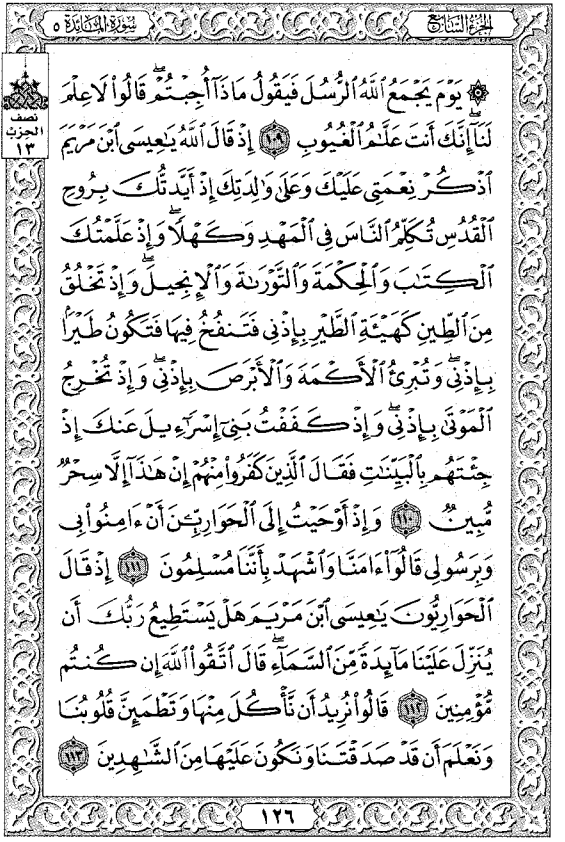 سُورَةُ المَائدة ٥
الجزء السّابع
نصف
الحِزب
١٣
۞ يَوْمَ يَجْمَعُ ٱللَّهُ ٱلرُّسُلَ فَيَقُولُ مَاذَآ أُجِبْتُمْۖ قَالُوا۟ لَا عِلْمَ
لَنَآۖ إِنَّكَ أَنتَ عَلَّٰمُ ٱلْغُيُوبِ ١٠٩ إِذْ قَالَ ٱللَّهُ يَٰعِيسَى ٱبْنَ مَرْيَمَ
ٱذْكُرْ نِعْمَتِى عَلَيْكَ وَعَلَىٰ وَٰلِدَتِكَ إِذْ أَيَّدتُّكَ بِرُوحِ
ٱلْقُدُسِ تُكَلِّمُ ٱلنَّاسَ فِى ٱلْمَهْدِ وَكَهْلًاۖ وَإِذْ عَلَّمْتُكَ
ٱلْكِتَٰبَ وَٱلْحِكْمَةَ وَٱلتَّوْرَىٰةَ وَٱلْإِنجِيلَۖ وَإِذْ تَخْلُقُ
مِنَ ٱلطِّينِ كَهَيْـَٔةِ ٱلطَّيْرِ بِإِذْنِى فَتَنفُخُ فِيهَا فَتَكُونُ طَيْرًۢا
بِإِذْنِىۖ وَتُبْرِئُ ٱلْأَكْمَهَ وَٱلْأَبْرَصَ بِإِذْنِىۖ وَإِذْ تُخْرِجُ
ٱلْمَوْتَىٰ بِإِذْنِىۖ وَإِذْ كَفَفْتُ بَنِىٓ إِسْرَٰٓءِيلَ عَنكَ إِذْ
جِئْتَهُم بِٱلْبَيِّنَٰتِ فَقَالَ ٱلَّذِينَ كَفَرُوا۟ مِنْهُمْ إِنْ هَٰذَآ إِلَّا سِحْرٌ
مُّبِينٌ ١١٠ وَإِذْ أَوْحَيْتُ إِلَى ٱلْحَوَارِيِّۦنَ أَنْ ءَامِنُوا۟ بِى
وَبِرَسُولِى قَالُوٓا۟ ءَامَنَّا وَٱشْهَدْ بِأَنَّنَا مُسْلِمُونَ ١١١ إِذْ قَالَ
ٱلْحَوَارِيُّونَ يَٰعِيسَى ٱبْنَ مَرْيَمَ هَلْ يَسْتَطِيعُ رَبُّكَ أَن
يُنَزِّلَ عَلَيْنَا مَآئِدَةً مِّنَ ٱلسَّمَآءِۖ قَالَ ٱتَّقُوا۟ ٱللَّهَ إِن كُنتُم
مُّؤْمِنِينَ ١١٢ قَالُوا۟ نُرِيدُ أَن نَّأْكُلَ مِنْهَا وَتَطْمَئِنَّ قُلُوبُنَا
وَنَعْلَمَ أَن قَدْ صَدَقْتَنَا وَنَكُونَ عَلَيْهَا مِنَ ٱلشَّٰهِدِينَ ١١٣
١٢٦